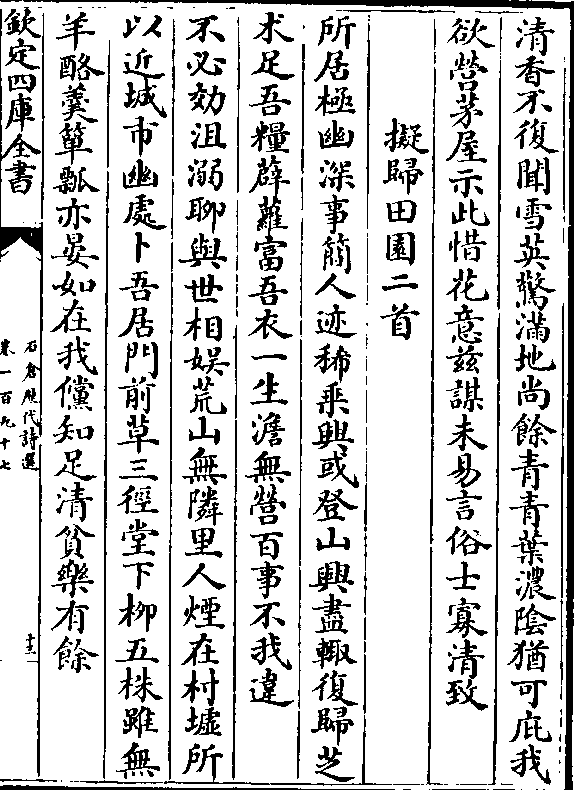 清香不復聞雪英驚滿地尚餘青青葉濃陰猶可庇我
欲營茅屋示此惜花意兹謀未易言俗士寡清致
擬歸田園二首
所居極幽深事簡人迹稀乗興或登山興盡輙復歸芝
术足吾糧薜蘿富吾衣一生澹無營百事不我違
不必効沮溺聊與世相娱荒山無隣里人煙在村墟所
以近城市幽處卜吾居門前草三徑堂下栁五株雖無
羊酪羮簞瓢亦晏如在我儻知足清貧樂有餘
欽定四庫全書
石倉歴代詩選
卷一百九十七
十三